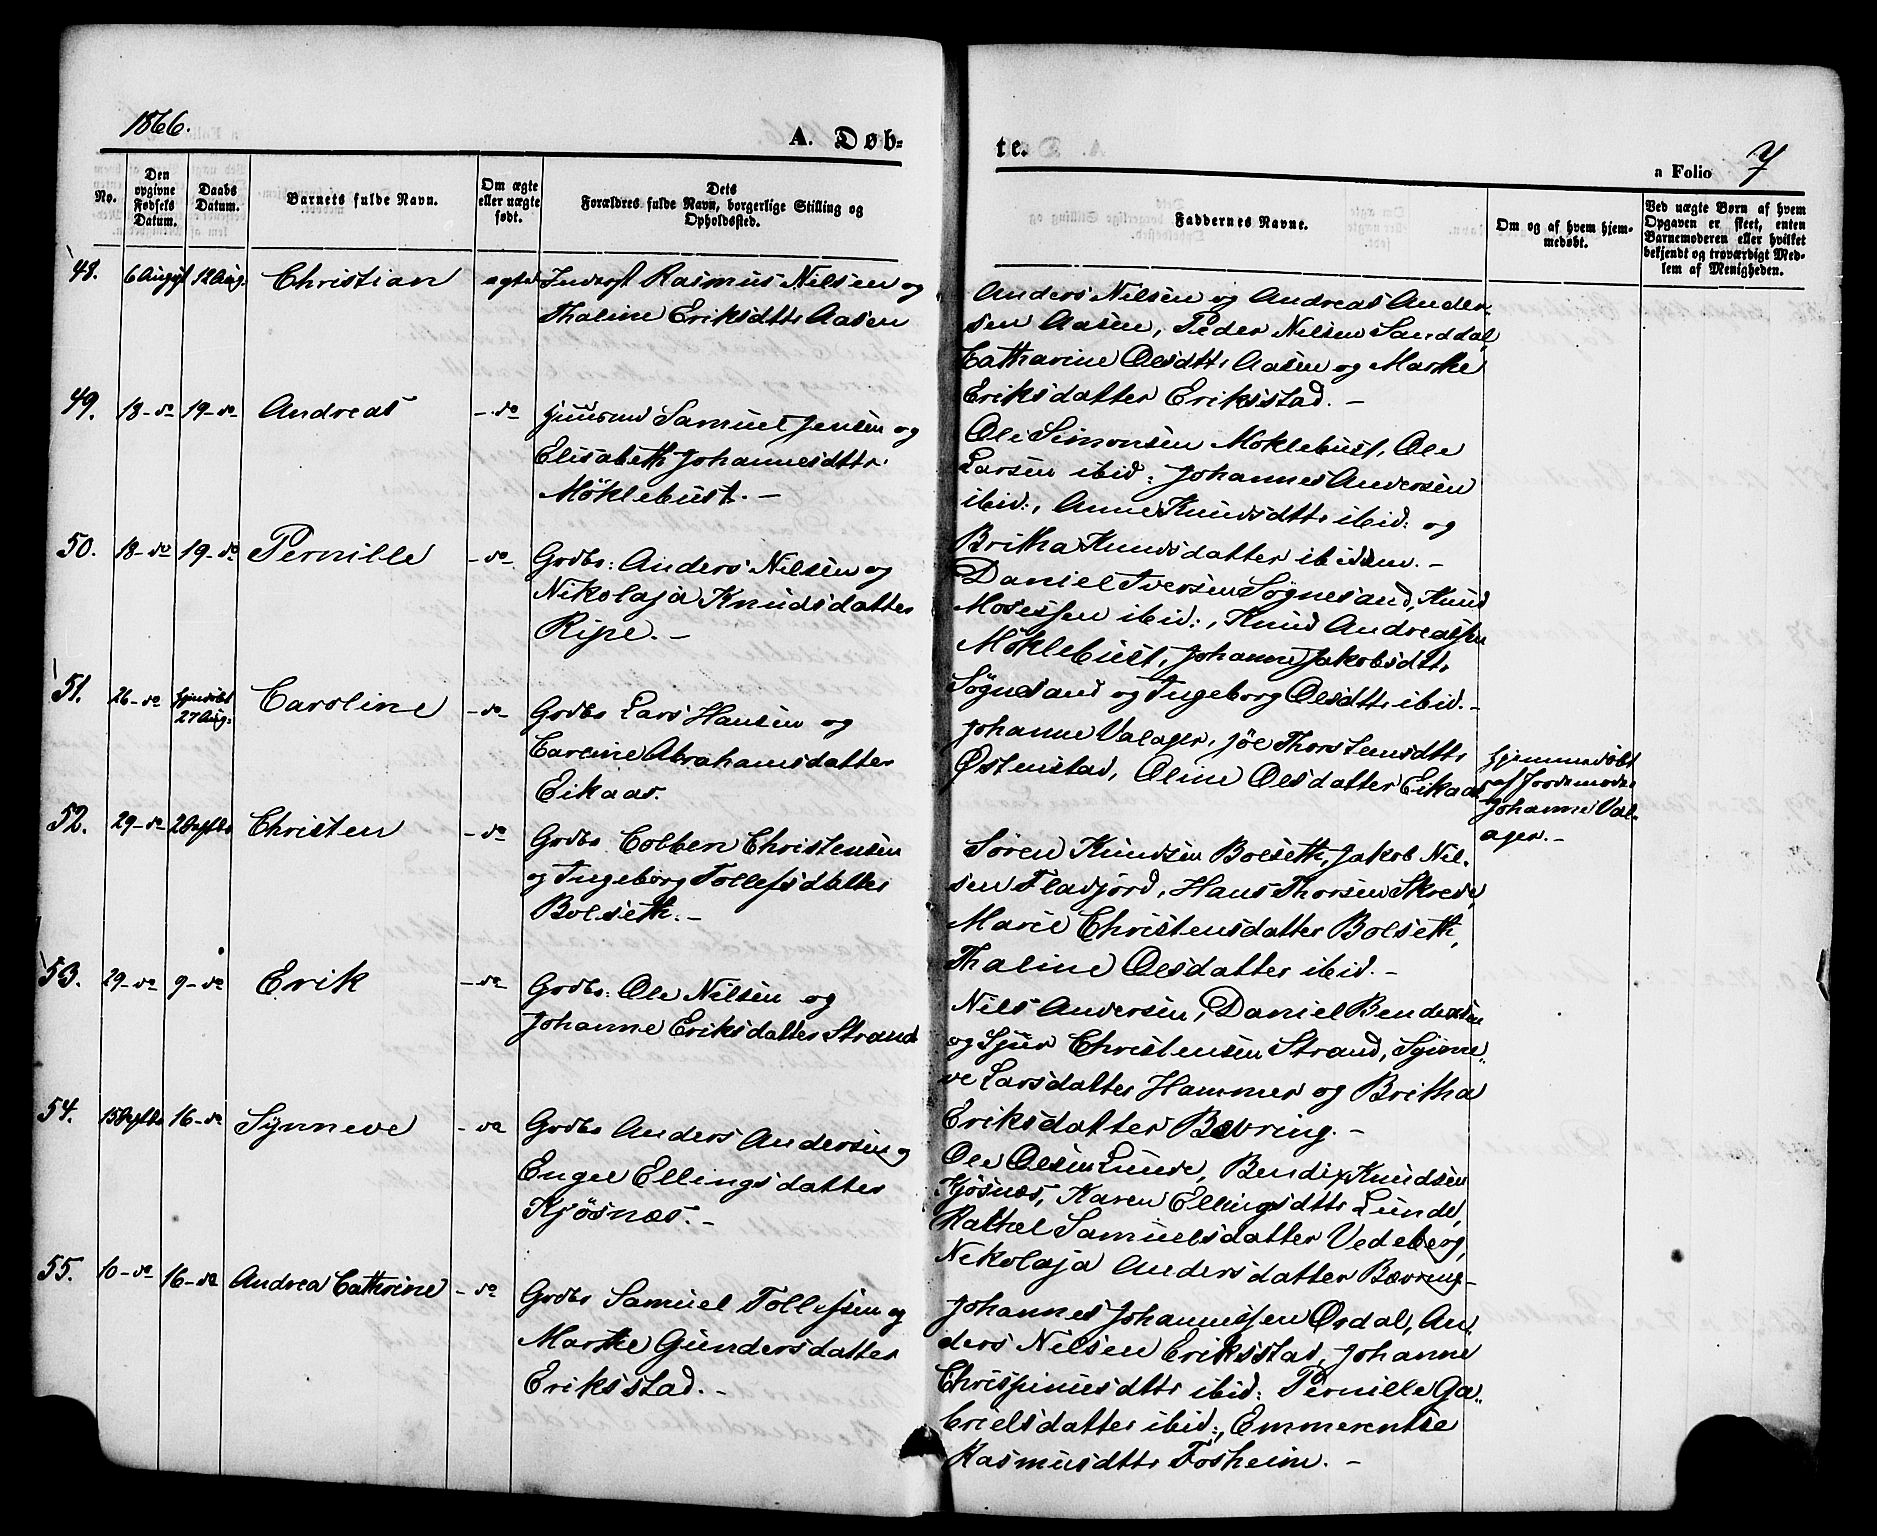 1866.
A. Døb-
te.
a Folio 7
No.
Den opgivne Fødsels Datum.
Daabs Datum.
Barnets fulde Navn.
Om ægte eller uægte født.
Dets Forældres fulde Navn, borgerlige Stilling og Opholdssted.
Faddernes Navne.
Om og af hvem hjemmedøbt.
Ved uægte Børn af hvem Opgaven er skeet, enten Barnemoderen eller hvilket bekjendt og troværdigt Medlem af Menigheden.
48. 6 August 12 Aug. Christian ægte Rasmus Nilsen og
Thaline Eriksdttr Aasen
Anders Nilsen og Andreas Ander-
sen Aasen, Peder Nilsen Sanddal,
Catharine Olsdttr Aasen og Marthe
Eriksdatter Eriksstad. -
49. 18 - do 19 - do Andreas - do Huusmd Samuel Jensen og
Elisabeth Johannesdttr
Möklebust. -
Ole Simonsen Moklebust, Ole
Larsen ibid: Johannes Andersen
ibid:, Anne Knudsdttr ibid: og
Britha Knudsdatter ibidem. -
50. 18 - do 19 - do Pernille - do Grdbr: Anders Nilsen og
Nikolaja Knudsdatter
Ripe. -
Daniel Iversen Søgnesand, Knud
Mosessen ibid:, Knud Andreassen
Möklebust, Johanne Jakobsdttr
Søgnesand og Ingeborg Olsdttr ibid. -
51. 26 - do Hjmdöbt
27 Aug: Caroline - do Grdbr Lars Hansen og
Carline Abrahamsdatter
Eikaas.
Johanne Valager, Jøl Thorstensdttr
Østenstad, Oline Olsdatter Eikaas
Hjemmedøbt
af Jordemoder
Johanne Val-
ager. -
52. 29 - do 2 Septbr Christen - do Grdbr Colben Christensen
og Ingeborg Tollefsdatter
Bolseth. -
Søren Knudsen Bolseth, Jakob Nil-
sen Fladjord, Hans Thorsen Skrede,
Marie Christensdatter Bolseth,
Thaline Olsdatter ibid. -
53. 29 - do 9 - do Erik - do Grdbr: Ole Nilsen og
Johanne Eriksdatter Strand
Nils Andersen, Daniel Bendixsen
og Sjur Christensen Strand, Synne-
ve Larsdatter Hammer og Britha
Eriksdatter Bævring. -
54. 15 Septbr 16 - do Synneve - do Grdbr Anders Andersen og
Engel Ellingsdatter
Kjøsnæs. -
Ole Olsen Lunde, Bendix Knudsen
Kjøsnæs, Karen Ellingsdttr Lunde,
Rakel Samuelsdatter Vedeberg,
Nikolaja Andersdatter Bævring -
55. 10 - do 16 - do Andrea Cathrine - do Grdbr Samuel Tollefsen og
Marthe Gundersdatter
Eriksstad. -
Johannes Johannessen Ørdal, An-
ders Nilsen Eriksstad, Johanne
Chrispinusdttr ibid: Pernille Ga-
brielsdatter ibid:, Emmerentse
Rasmusdttr Fosheim. -